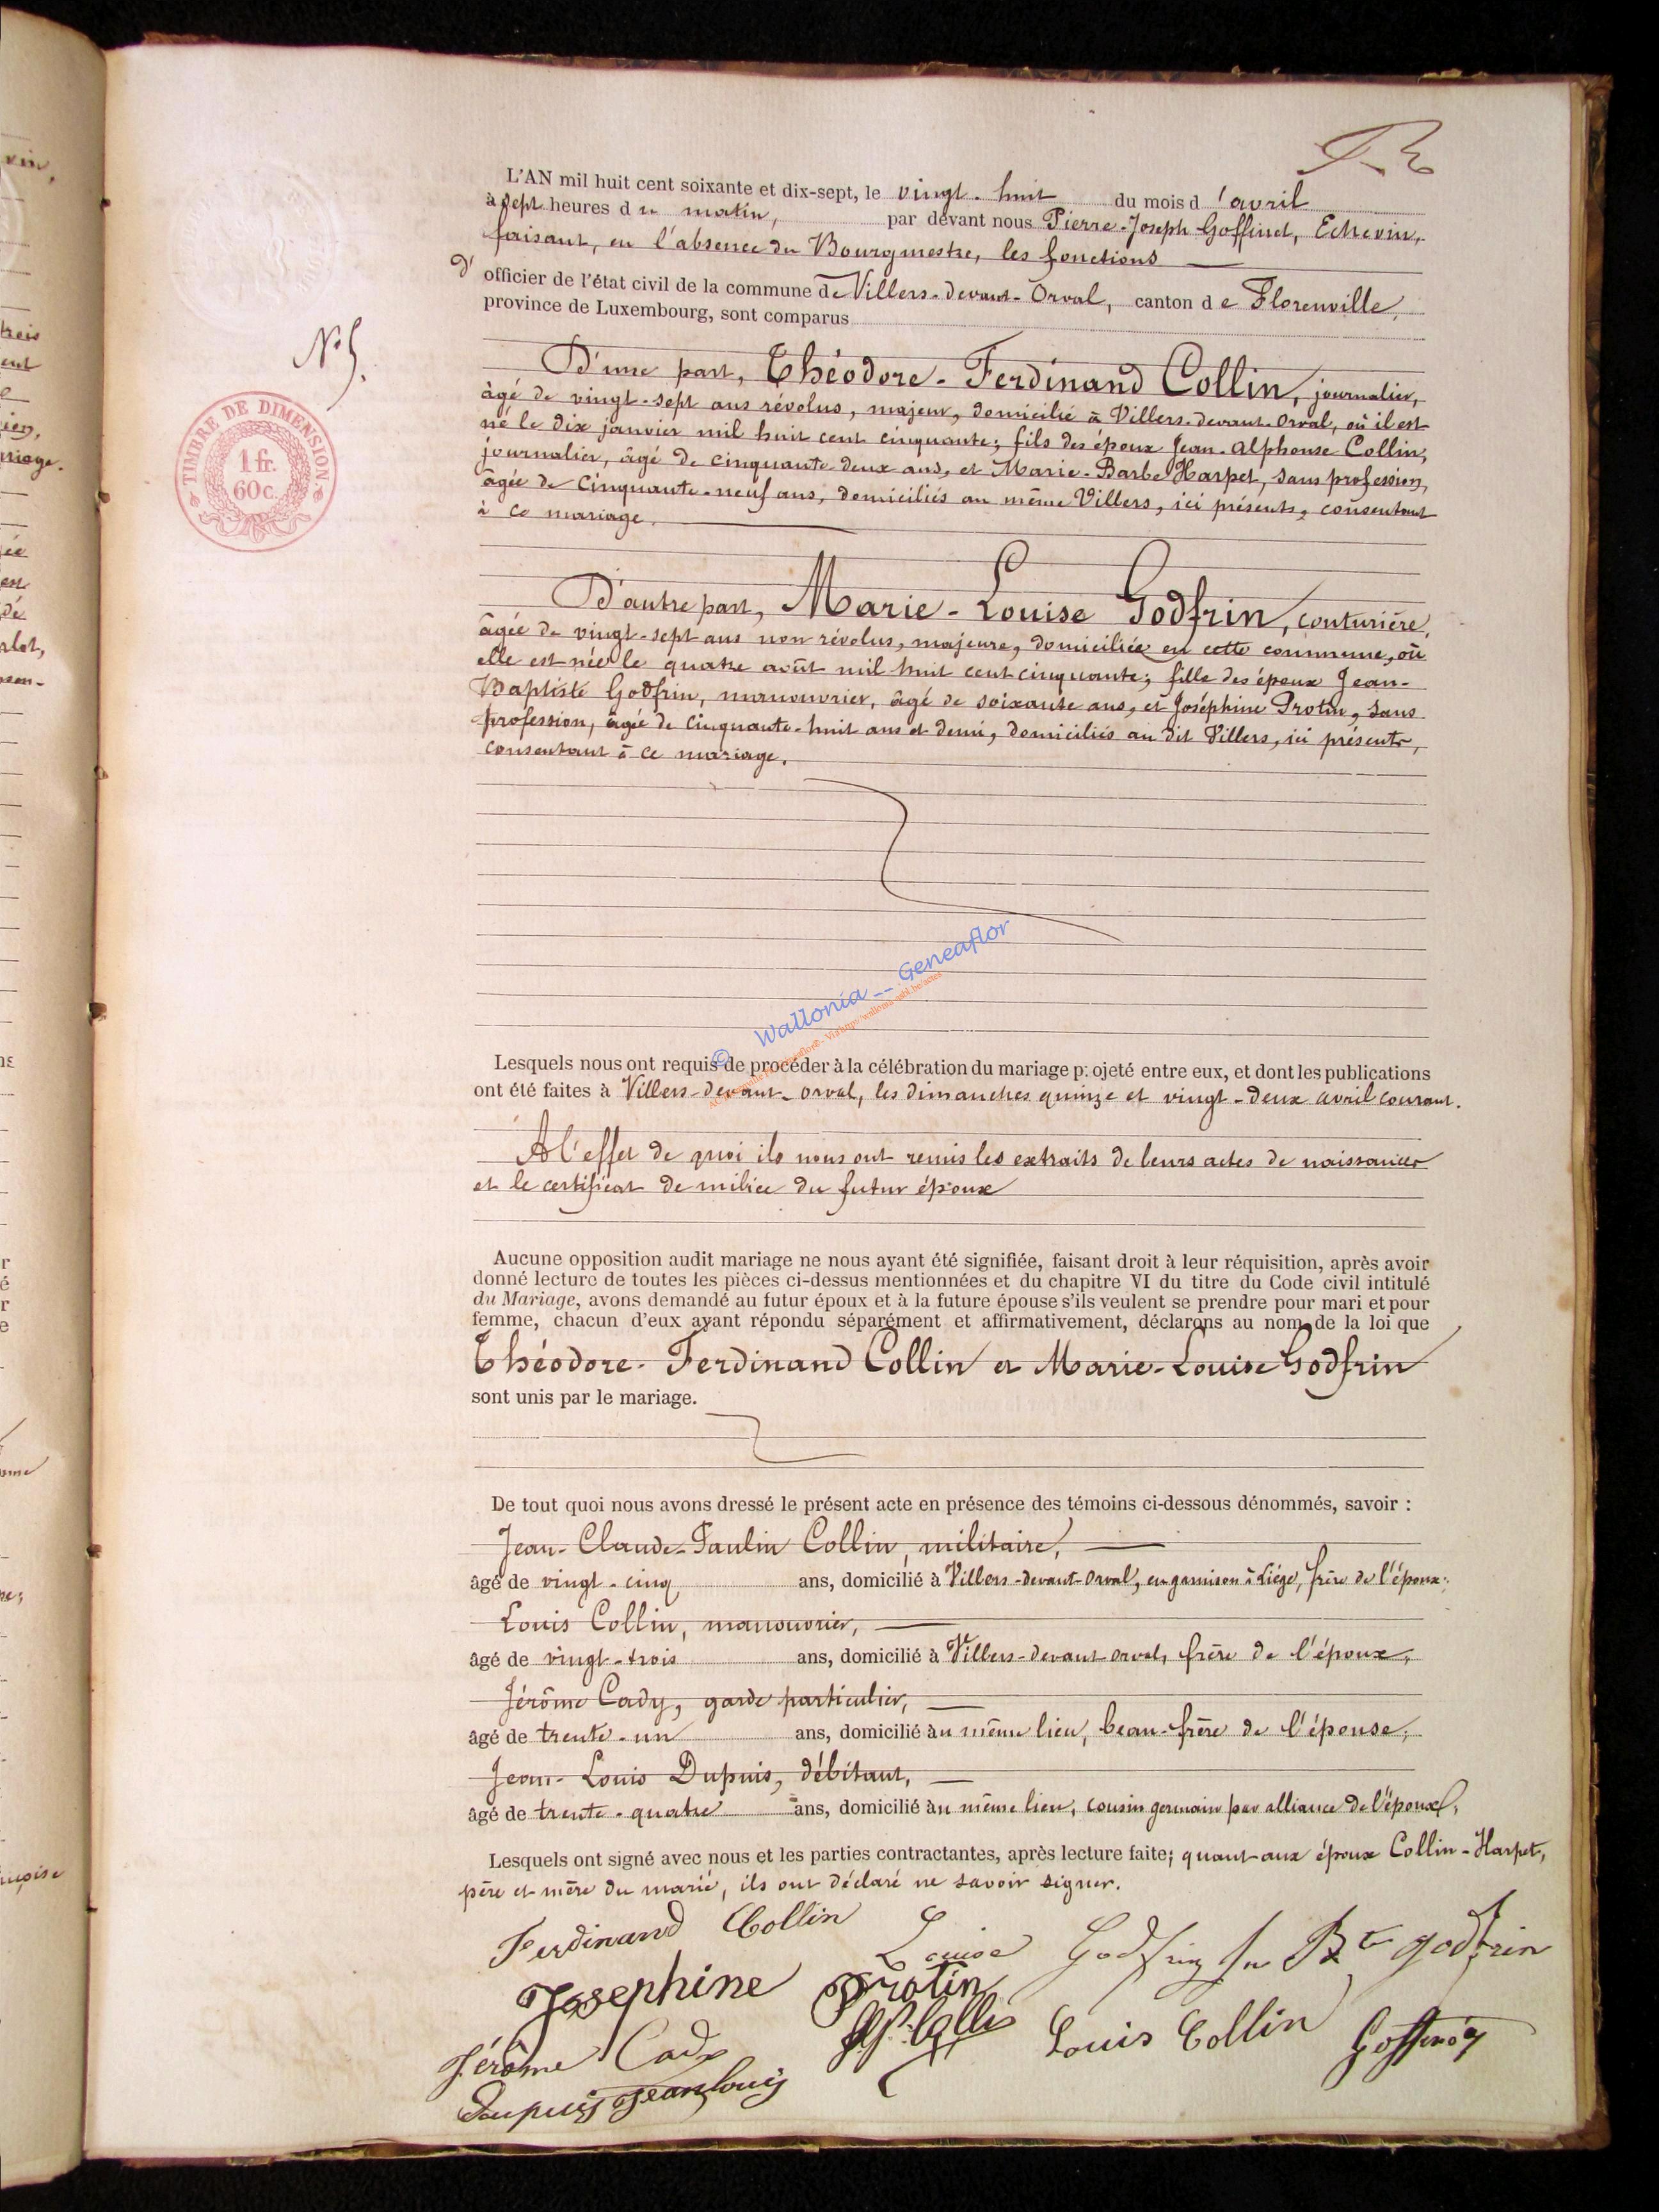 L'AN mil huit cent soixante et dix-sept, le vingt-huit du mois d'avril
à sept heures du matin, par devant nous Pierre-Joseph Goffinet, Echevin,
faisant, en l'absence du Bourgmestre, les fonctions
d'officier de l'état civil de la commune de Villers-devant-Orval, canton de Florenville,
province de Luxembourg, sont comparus
N° 5.
TIMBRE DE DIMENSION.
1 fr.
60 c.
D'une part, Théodore-Ferdinand Collin, journalier,
âgé de vingt-sept ans révolus, majeur, domicilié à Villers-devant-Orval, où il est
né le dix janvier mil huit cent cinquante; fils des époux Jean-Alphonse Collin,
journalier, âgé de cinquante-deux ans, et Marie-Barbe Harpet, sans profession,
âgée de cinquante-neuf ans, domiciliés au même Villers, ici présents, consentant
à ce mariage.
D'autre part, Marie-Louise Godfrin, couturière,
âgée de vingt-sept ans non révolus, majeure, domiciliée en cette commune, où
elle est née le quatre août mil huit cent cinquante; fille des époux Jean-
Baptiste Godfrin, manouvrier, âgé de soixante ans, et Joséphine Protin, sans
profession, âgée de cinquante-huit ans et demi, domiciliés au dit Villers, ici présents,
consentant à ce mariage.
© Wallonia__Geneaflor
Lesquels nous ont requis de procéder à la célébration du mariage p: ojeté entre eux, et dont les publications
ont été faites à Villers-devant-Orval, les dimanches quinze et vingt-deux avril courant.
A l'effet de quoi ils nous ont remis les extraits de leurs actes de naissances
et le certificat de milice du futur époux
Aucune opposition audit mariage ne nous ayant été signifiée, faisant droit à leur réquisition, après avoir
donné lecture de toutes les pièces ci-dessus mentionnées et du chapitre VI du titre du Code civil intitulé
du Mariage, avons demandé au futur époux et à la future épouse s'ils veulent se prendre pour mari et pour
femme, chacun d'eux ayant répondu séparément et affirmativement, déclarons au nom de la loi que
Théodore-Ferdinand Collin et Marie-Louise Godfrin
sont unis par le mariage.
De tout quoi nous avons dressé le présent acte en présence des témoins ci-dessous dénommés, savoir :
Jean-Claude-Paulin Collin, militaire,
âgé de vingt-cinq ans, domicilié à Villers-devant-Orval, en garnison à Liége, frère de l'époux;
Louis Collin, manouvrier,
âgé de vingt-trois ans, domicilié à Villers-devant-Orval, frère de l'époux,
Jérôme Cady, garde particulier,
âgé de trente-un ans, domicilié au même lieu, beau-frère de l'épouse;
Jean-Louis Dupuis, débitant,
âgé de trente-quatre ans, domicilié au même lieu, cousin germain par alliance de l'époux,
Lesquels ont signé avec nous et les parties contractantes, après lecture faite; quant aux époux Collin-Harpet,
père et mère du marié, ils ont déclaré ne savoir signer.
Ferdinand Collin Louise Godfrin Jn Bte godfrin
Josephine Protin
Jérôme Cady Louis Collin
Dupuis jean louis